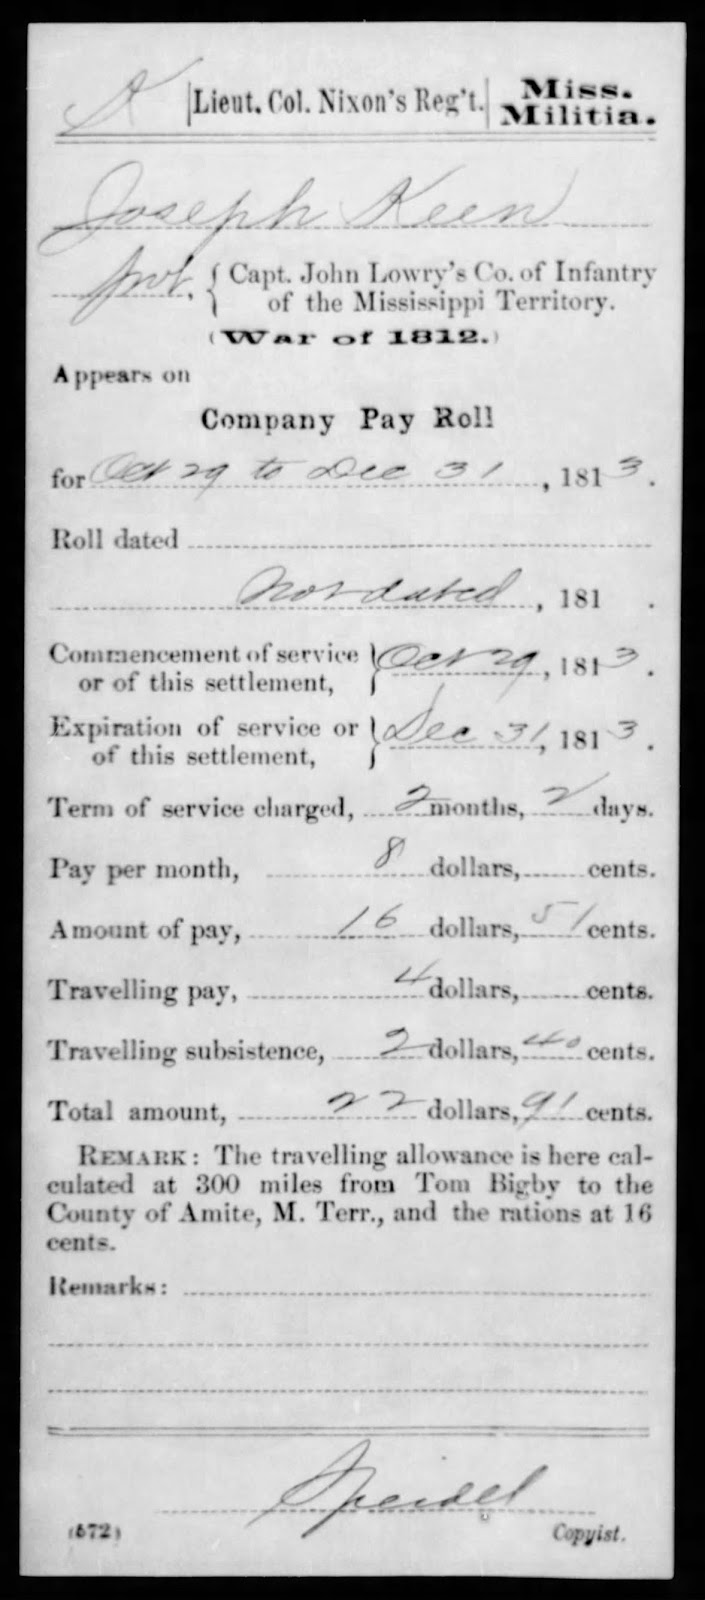 K | Lieut. Col. Nixon's Reg't. | Miss. Militia.
Joseph Keen
pvt, { Capt. John Lowry's Co. of Infantry
of the Mississippi Territory.
(War of 1812.)
Appears on
Company Pay Roll
for Oct 29 to Dec 31, 1813.
Roll dated
Not dated, 181 .
Commencement of service
or of this settlement, } Oct 29, 1813.
Expiration of service or
of this settlement, } Dec 31, 1813.
Term of service charged, 2 months, 2 days.
Pay per month, 8 dollars, cents.
Amount of pay, 16 dollars, 51 cents.
Travelling pay, 4 dollars, cents.
Travelling subsistence, 2 dollars, 40 cents.
Total amount, 22 dollars, 91 cents.
REMARK: The travelling allowance is here cal-
culated at 300 miles from Tom Bigby to the
County of Amite, M. Terr., and the rations at 16
cents.
Remarks:
Speidel
(572) Copyist.